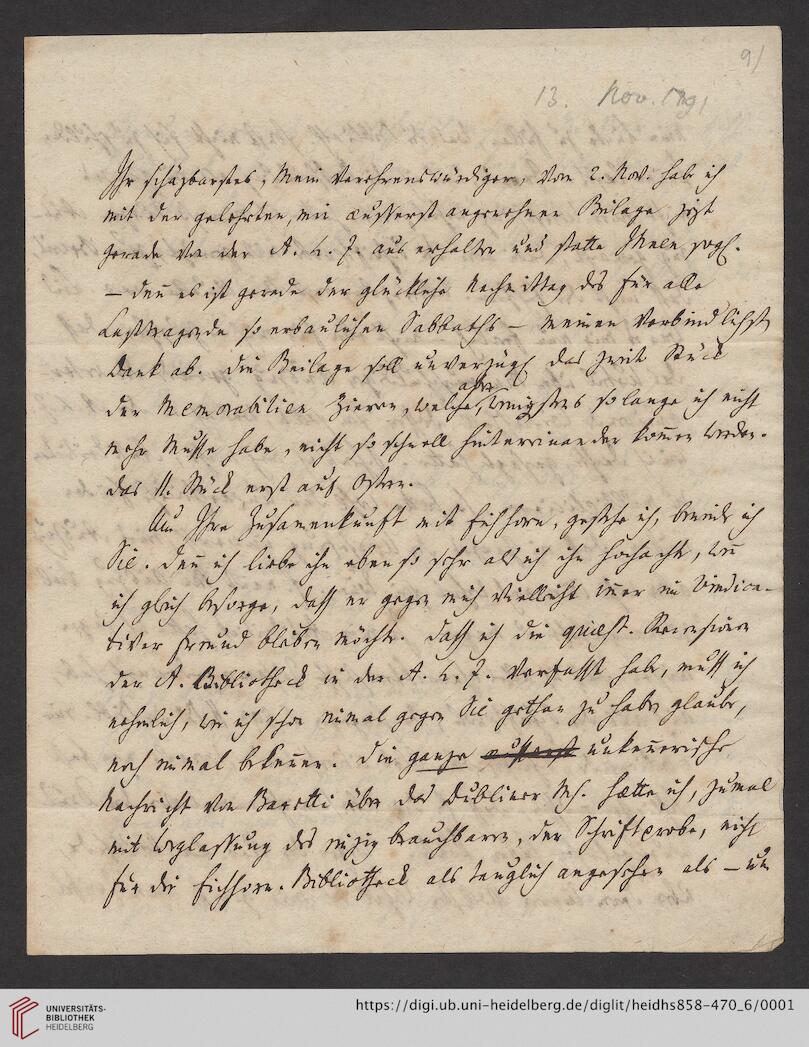 9)
13. Nov. 1791
Ihr schäzbarstes, Mein Verehrenswürdiger, vom 2. Nov. habe ich
mit der gelehrten, mir äusserst angenehmen Beilage jezt
gerade von der A. L. Z. aus erhalten und statte Ihnen sogl.
– denn es ist gerade der glückliche Nachmittag des für alle
so erbaulichen Sabbaths – meinen Verbindlichst
Dank ab. Die Beilage soll unverzügl. das zweite Stück
der Memorabilien zieren, welche, aber wenigstens so lange ich nicht
mehr Musse habe, nicht so schnell hintereinander kommen werden.
das II. Stück erst auf Ostern.
Um Ihre Zusammenkunft mit Eichhorn, gestehe ich, beneide ich
Sie. Denn ich liebe ihn eben so sehr als ich ihn hochachte, wenn
ich gleich besorge, dass er gegen mich vielleicht immer ein vindica-
tiver Freund bleiben möchte. Dass ich die quaest. Recensionen
der A. Bibliotheck in der A. L. Z. verfasst habe, muss ich
nehmlich, wie ich schon einmal gegen Sie gethan zu haben glaube,
noch einmal bekennen. Die ganze unkennerische
Nachricht von Baretti über das Dubliner Ms. hätte ich, zumal
mit Weglassung des einzig brauchbaren, der Schriftprobe, nicht
für die Eichhorn. Bibliotheck als tauglich angesehen als –
UNIVERSITÄTS-
BIBLIOTHEK
HEIDELBERG
https://digi.ub.uni-heidelberg.de/diglit/heidhs858-470_6/0001